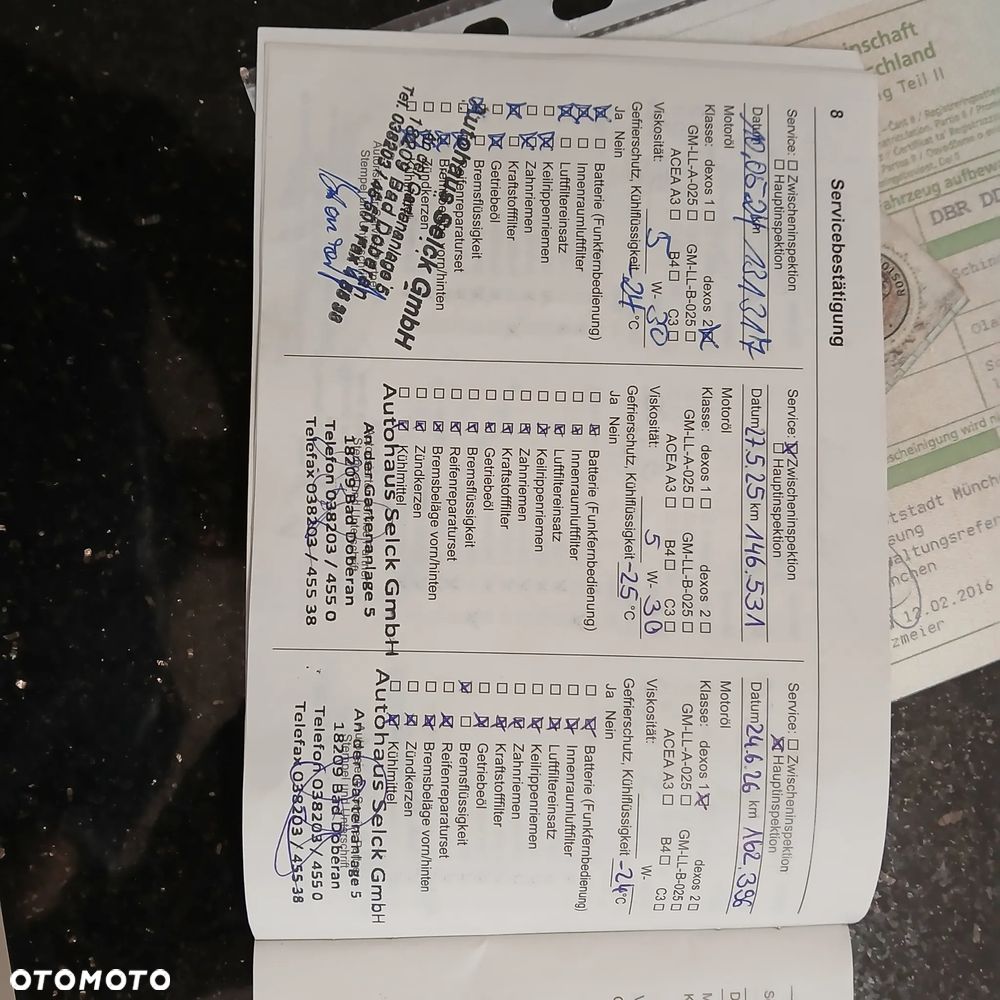 8
Servicebestätigung
Service: Zwischeninspektion
Hauptinspektion
Datum 10.05.24 131.317
Motoröl
Klasse: dexos 1 dexos 2
GM-LL-A-025 GM-LL-B-025
ACEA A3 B4 C3
Viskosität: 5 W- 30
Gefrierschutz, Kühlflüssigkeit -24 °C
Ja Nein
Batterie (Funkfernbedienung)
Innenraumluftfilter
Luftfiltereinsatz
Keilrippenriemen
Zahnriemen
Kraftstofffilter
Getriebeöl
Bremsflüssigkeit
Reifenreparaturset
Zündkerzen
Autohaus Selck GmbH
An der Gartenanlage 5
18209 Bad Doberan
Service: Zwischeninspektion
Hauptinspektion
Datum 27.5.25 km 146.531
Motoröl
Klasse: dexos 1 dexos 2
GM-LL-A-025 GM-LL-B-025
ACEA A3 B4 C3
Viskosität: 5 W- 30
Gefrierschutz, Kühlflüssigkeit -25 °C
Ja Nein
Batterie (Funkfernbedienung)
Innenraumluftfilter
Luftfiltereinsatz
Keilrippenriemen
Zahnriemen
Kraftstofffilter
Getriebeöl
Bremsflüssigkeit
Reifenreparaturset
Bremsbeläge vorn/hinten
Zündkerzen
Kühlmittel
Autohaus Selck GmbH
An der Gartenanlage 5
18209 Bad Doberan
Telefon 038203 / 455 0
Telefax 038203 / 455 38
Service: Zwischeninspektion
Hauptinspektion
Datum 24.6.26 km 162.396
Motoröl
Klasse: dexos 1 dexos 2
GM-LL-A-025 GM-LL-B-025
ACEA A3 B4 C3
Viskosität: W-
Gefrierschutz, Kühlflüssigkeit -24 °C
Ja Nein
Batterie (Funkfernbedienung)
Innenraumluftfilter
Luftfiltereinsatz
Keilrippenriemen
Zahnriemen
Kraftstofffilter
Getriebeöl
Bremsflüssigkeit
Reifenreparaturset
Bremsbeläge vorn/hinten
Zündkerzen
Kühlmittel
Autohaus Selck GmbH
An der Gartenanlage 5
18209 Bad Doberan
Telefon 038203 / 455 0
Telefax 038203 / 455 38
inschaft
chland
g Teil II
DBR
12.02.2016
zmeier
OTOMOTO